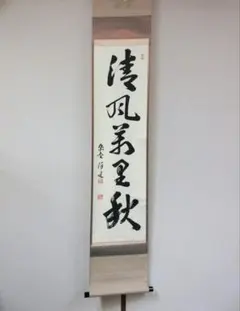 清風万里秋